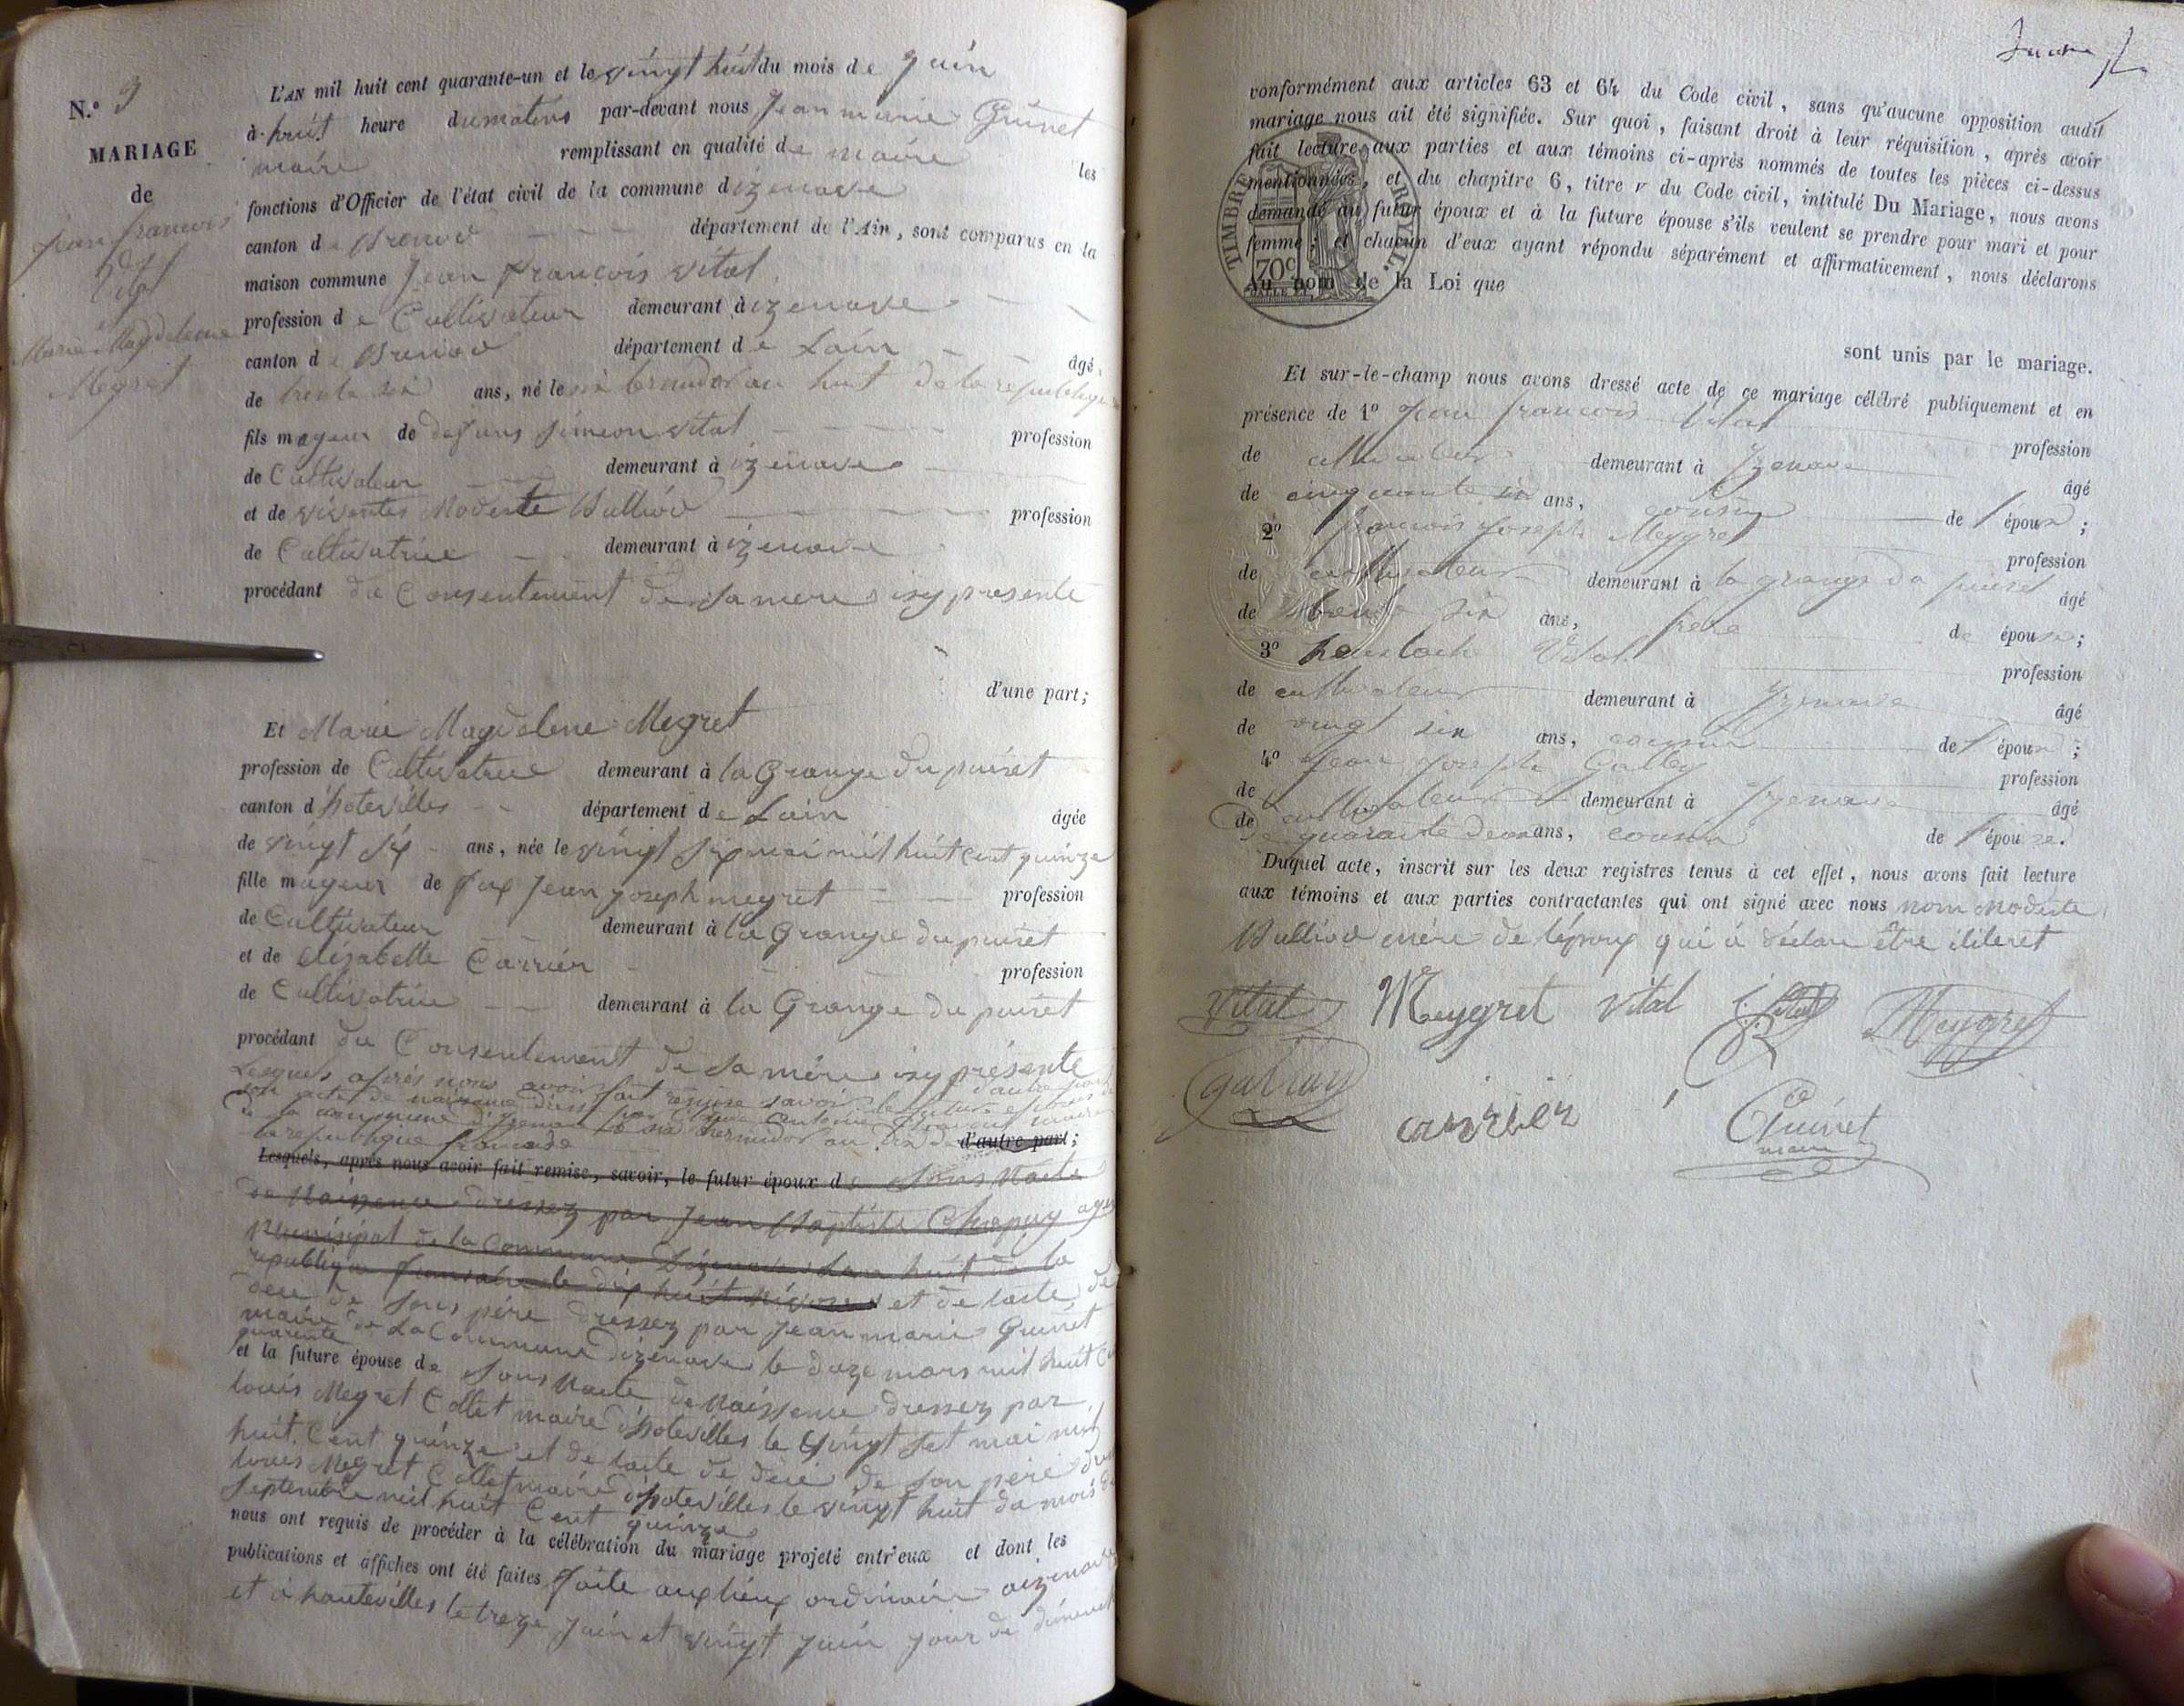 N.º 9
MARIAGE
de
jean francois
Vital
et
Marie Magdeleine
Megret
L'AN mil huit cent quarante-un et le vingt huit du mois de juin
à huit heure du matins par-devant nous Jean marie Guinet
maire remplissant en qualité de maire les
fonctions d'Officier de l'état civil de la commune dizenave
canton de Brenod département de l'Ain, sont comparus en la
maison commune Jean François Vital
profession de Cultivateur demeurant à izenave
canton de Brenod département de Lain âgé
de trente six ans, né le six termidor an huit de la republique
fils mageur de defuns Simeon Vital profession
de Cultivateur demeurant à izenave
et de vivantes Modeste Bulliod profession
de Cultivatrice demeurant à izenave
procédant du Consentement de sa mere isy presente
d'une part;
Et Marie Magdelene Megret
profession de Cultivatrice demeurant à la Grange du puiset
canton d'hotevilles département de Lain âgée
de vingt six ans, née le vingt six mai mil huit cent quinze
fille mageur de fux Jean Joseph megret profession
de Cultivateur demeurant à la Grange du puiset
et de elisabette Carrier profession
de Cultivatrice demeurant à la Grange du puiset
procédant du Consentement de sa mère isy présente
Lesquels après nous avoir fait remise savoir le futur epoux d'autre part
son acte de naissance
de la commune d'izenave le six termidor an
la republique francaise d'autre part;
Lesquels, après nous avoir fait remise, savoir, le futur époux de Sons Nacte
de Naissence dressez par Jean Baptiste Chapuy
municipal de la Commune Dizenave Lan huit de la
republique fransaise le dix huit nivose et de lacte de
dece de sons père dressez par Jean marie Guinet
maire de La Commune dizenave le doze mars mil huit
quarente
et la future épouse de Sons Nacte de Naissence dressez par
louis Megret Collet maire d'hotevilles le vingt set mai mil
huit Cent quinze et de lacte de dece de son père
louis Megret Collet maire d'hotevilles le vingt huit du mois
Septembre mil huit Cent quinze
nous ont requis de procéder à la célébration du mariage projeté entr'eux et dont les
publications et affiches ont été faites faite aux lieux ordinaire aizenave
et à hautevilles le treze juin et vingt juin jour de
conformément aux articles 63 et 64 du Code civil, sans qu'aucune opposition audit
mariage nous ait été signifiée. Sur quoi, faisant droit à leur réquisition, après avoir
fait lecture aux parties et aux témoins ci-après nommés de toutes les pièces ci-dessus
mentionnées, et du chapitre 6, titre v du Code civil, intitulé Du Mariage, nous avons
demandé au futur époux et à la future épouse s'ils veulent se prendre pour mari et pour
femme; et chacun d'eux ayant répondu séparément et affirmativement, nous déclarons
Au nom de la Loi que
TIMBRE ROYAL.
70c
sont unis par le mariage.
Et sur-le-champ nous avons dressé acte de ce mariage célébré publiquement et en
présence de 1º Jean francois Vital profession
de cultivateur demeurant à Izenave âgé
de cinquante six ans, cousin de l'époux;
2º francois joseph Meygret profession
de cultivateur demeurant à la grange du puiset âgé
de trente six ans, frere de épouse;
3º Vital profession
de cultivateur demeurant à Izenave âgé
de vingt six ans, cousin de l'époux;
4º Jean Joseph Galley profession
de cultivateur demeurant à Izenave âgé
de quarante deux ans, cousin de l'épouse.
Duquel acte, inscrit sur les deux registres tenus à cet effet, nous avons fait lecture
aux témoins et aux parties contractantes qui ont signé avec nous nom Modeste
Bulliod mère de lépoux qui a déclare être ileteret
Vital Meygret vital Meygret
carrier Guinet
maire